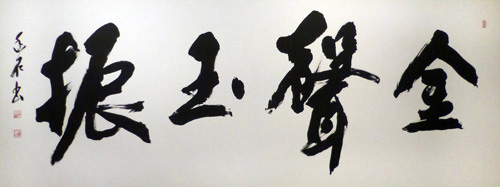 金聲玉振